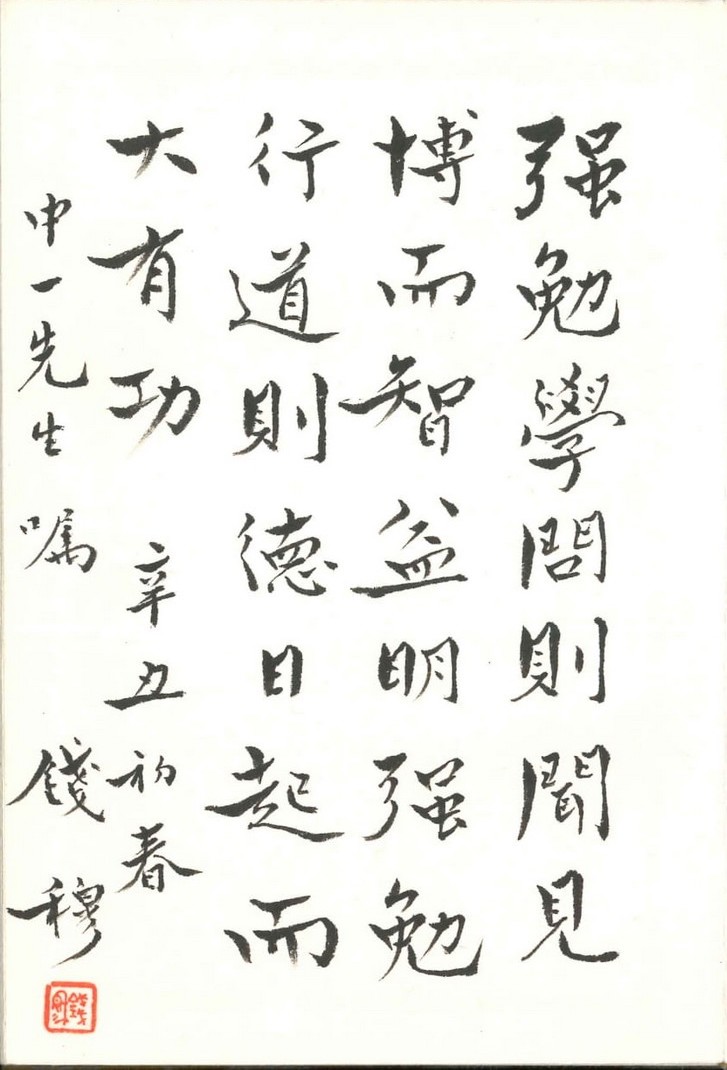 强勉學問則聞見
博而智益明强勉
行道則德日起而
大有功 辛丑初春
中一先生嘱 錢穆
錢穆